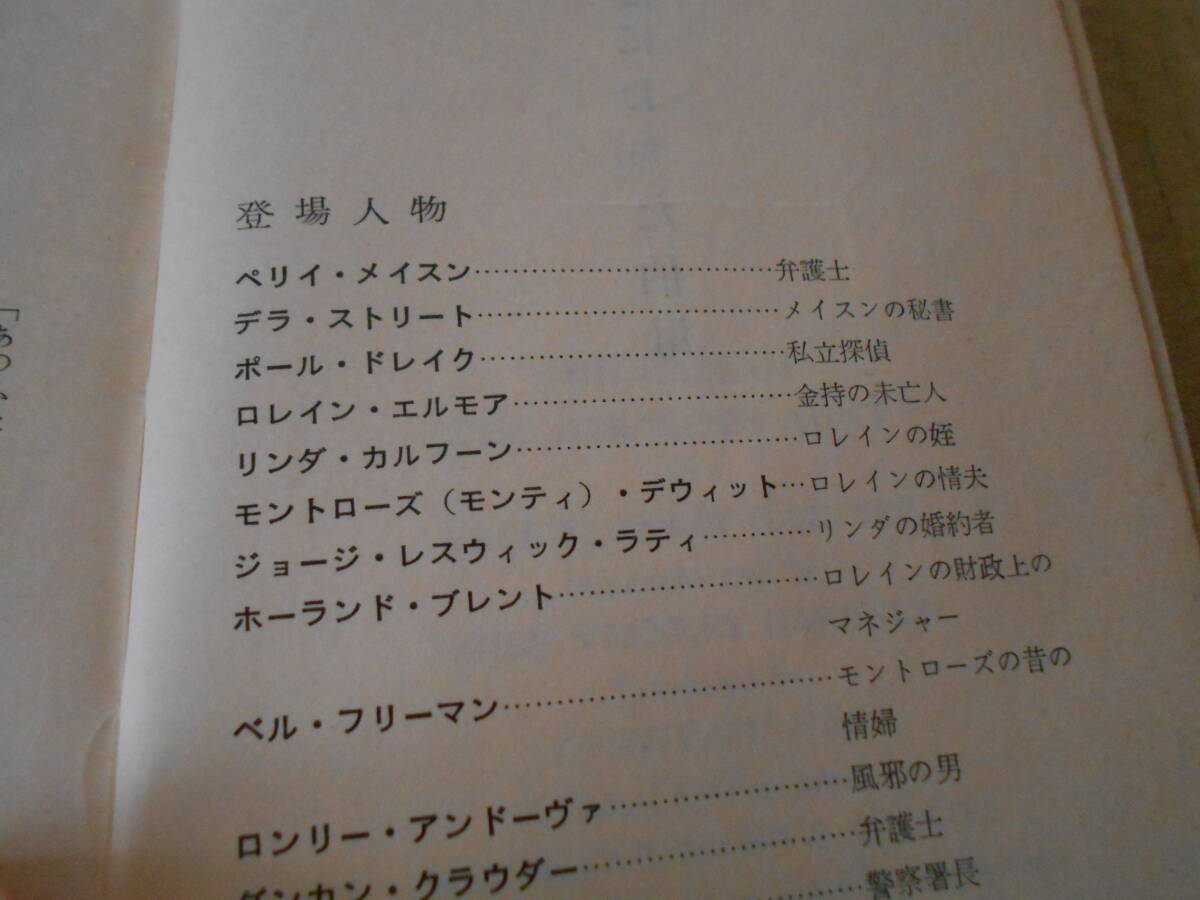 登場人物
ペリイ・メイスン……………………………弁護士
デラ・ストリート……………………………メイスンの秘書
ポール・ドレイク……………………………私立探偵
ロレイン・エルモア…………………………金持の未亡人
リンダ・カルフーン…………………………ロレインの姪
モントローズ（モンティ）・デウィット…ロレインの情夫
ジョージ・レスウィック・ラティ…………リンダの婚約者
ホーランド・ブレント………………………ロレインの財政上の
マネジャー
ベル・フリーマン……………………………モントローズの昔の
情婦
ロンリー・アンドーヴァ……………………風邪の男
ダンカン・クラウダー………………………弁護士
…………警察署長